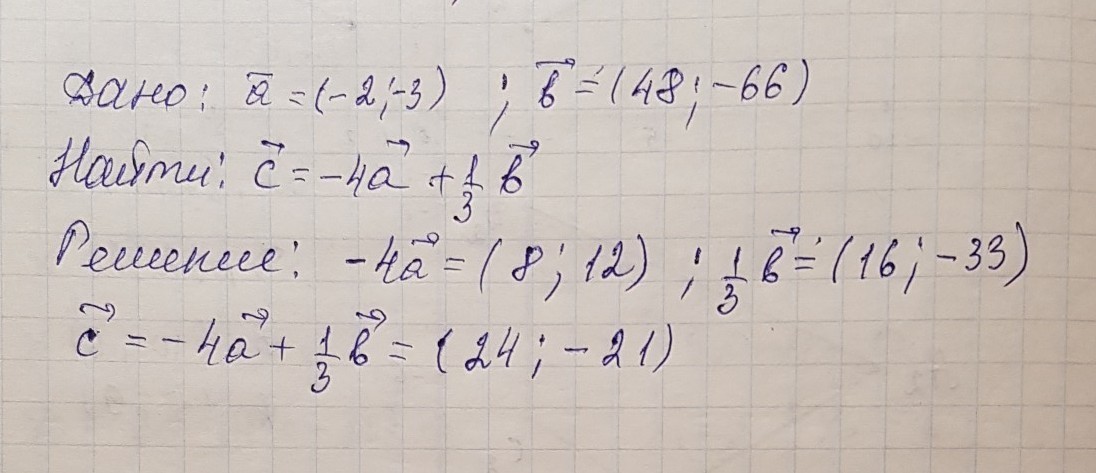 Дано: a̅ = (-2;-3) ; b⃗ = (48;-66)
Найти: c⃗ = -4a⃗ + 1/3 b⃗
Решение: -4a⃗ = (8; 12) ; 1/3 b⃗ = (16; -33)
c⃗ = -4a⃗ + 1/3 b⃗ = (24; -21)